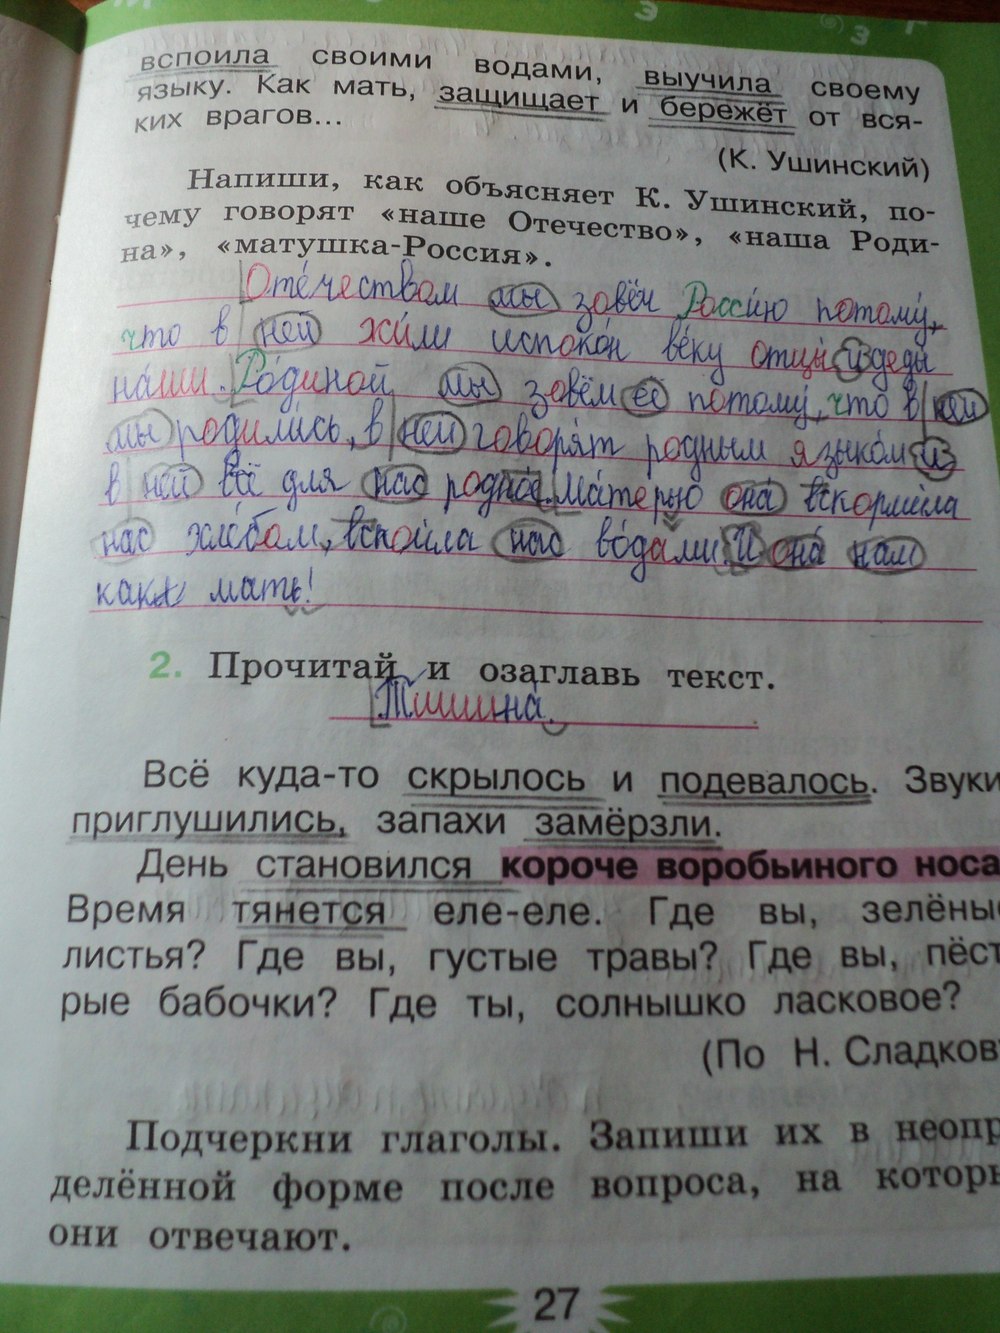 вспоила своими водами, выучила своему
языку. Как мать, защищает и бережёт от вся-
ких врагов...
(К. Ушинский)
Напиши, как объясняет К. Ушинский, по-
чему говорят «наше Отечество», «наша Роди-
на», «матушка-Россия».
Оте́чеством мы зовём Росси́ю потому́,
что в ней жи́ли испоко́н ве́ку отцы́ и деды
на́ши. Ро́диной мы зовём её потому́, что в ней
мы роди́лись, в ней говоря́т родным языко́м и
в ней всё для нас родно́е. Ма́терью она́ вскорми́ла
нас хле́бом, вспои́ла нас во́дами. И она́ нам
как мать!
2. Прочитай и озаглавь текст.
Тишина́.
Всё куда-то скрылось и подевалось. Звуки
приглушились, запахи замёрзли.
День становился короче воробьиного носа
Время тянется еле-еле. Где вы, зелёные
листья? Где вы, густые травы? Где вы, пёст
рые бабочки? Где ты, солнышко ласковое?
(По Н. Сладков
Подчеркни глаголы. Запиши их в неопр
делённой форме после вопроса, на которы
они отвечают.
27